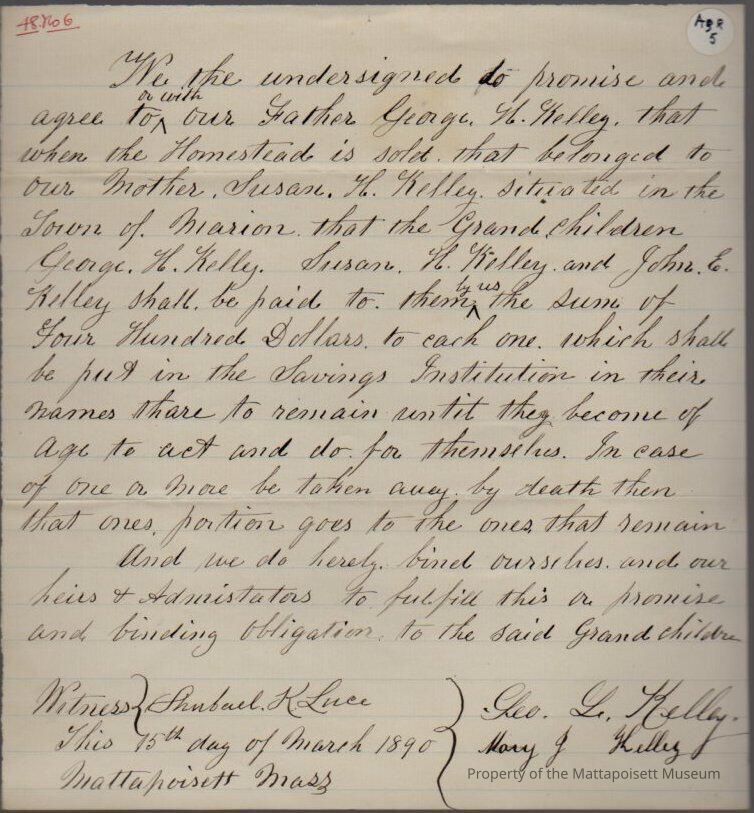 48.No 6
A&R
5
We the undersigned do promise and
or with
agree to ^ our Father George. H. Kelley. that
when the Homestead is sold. that belonged to
our Mother. Susan. H. Kelley. situated in the
Town of. Marion. that the Grand children
George. H. Kelly. Susan. H. Kelley. and John. E.
by us
Kelley shall. be paid to. them ^ the sum of
Four Hundred Dollars. to each one. which shall
be put in the Savings Institution in their
names thare to remain until they become of
Age to act and do. for themselves. In case
of one or more be taken away. by death then
that ones. portion goes to the ones that remain
And we do hereby. bind ourselves. and our
heirs & Admistators to fulfill this or promise
and binding obligation. to the said Grand children
Witness } Shubael. K Luce } Geo. L. Kelley.
This 15th day of March 1890 } Mary J Kelley
Mattapoisett Mass
Property of the Mattapoisett Museum